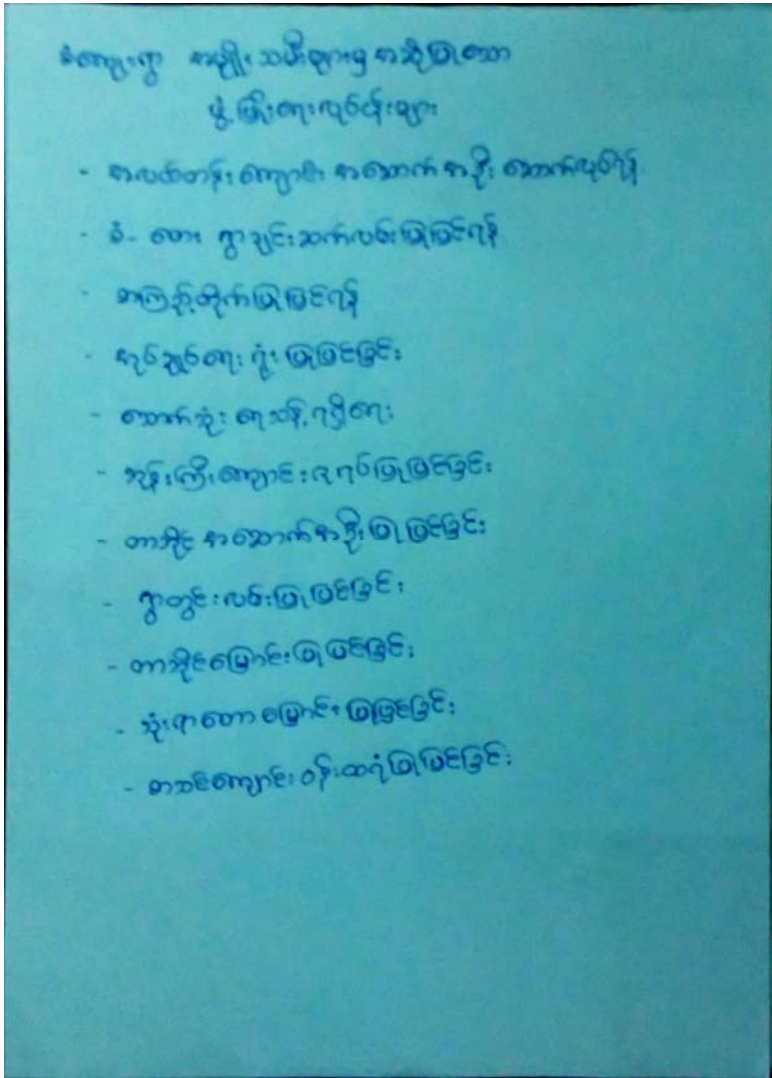 စံကျေးရွာ အမျိုးသမီးများမှ အဆိုပြုသော
ဖွံ့ဖြိုးရေးလုပ်ငန်းများ
- အလယ်တန်းကျောင်း အဆောက်အဦး ဆောက်လုပ်ရန်
- စံ- ရွာချင်းဆက်လမ်းပြုပြင်ရန်
- စာကြည့်တိုက်ပြုပြင်ရန်
- အုပ်ချုပ်ရေးရုံးပြုပြင်ခြင်း
- သောက်သုံးရေသန့်ရရှိရေး
- ဘုန်းကြီးကျောင်းဇရပ်ပြုပြင်ခြင်း
- တာဘိုင် အဆောက်အဦးပြုပြင်ခြင်း
- ရွာတွင်းလမ်းပြုပြင်ခြင်း
- တာဘိုင်မြောင်းပြုပြင်ခြင်း
- မြောင်းပြုပြင်ခြင်း
- စာသင်ကျောင်းဝန်းထရံပြုပြင်ခြင်း